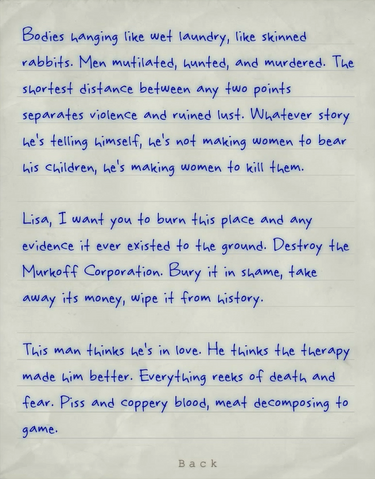 Bodies hanging like wet laundry, like skinned
rabbits. Men mutilated, hunted, and murdered. The
shortest distance between any two points
separates violence and ruined lust. Whatever story
he's telling himself, he's not making women to bear
his children, he's making women to kill them.
Lisa, I want you to burn this place and any
evidence it ever existed to the ground. Destroy the
Murkoff Corporation. Bury it in shame, take
away its money, wipe it from history.
This man thinks he's in love. He thinks the therapy
made him better. Everything reeks of death and
fear. Piss and coppery blood, meat decomposing to
game.
Back